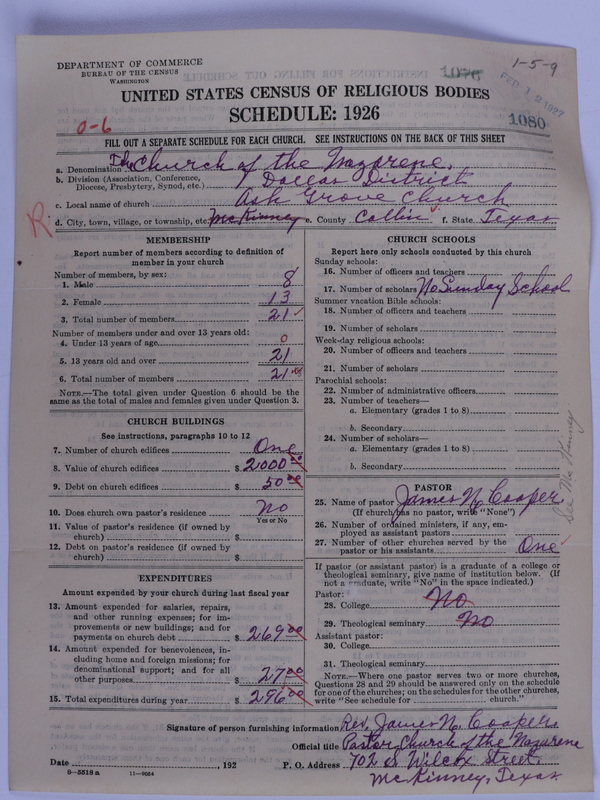 DEPARTMENT OF COMMERCE
BUREAU OF THE CENSUS
WASHINGTON
1076
1-5-9
FEB 12 1927
1080
UNITED STATES CENSUS OF RELIGIOUS BODIES
SCHEDULE: 1926
0-6
FILL OUT A SEPARATE SCHEDULE FOR EACH CHURCH. SEE INSTRUCTIONS ON THE BACK OF THIS SHEET
a. Denomination The Church of the Nazarene.
b. Division (Association, Conference, Diocese, Presbytery, Synod, etc.) Dallas District
c. Local name of church Ash Grove Church
R
d. City, town, village, or township, etc. McKinney e. County Collin f. State Texas
MEMBERSHIP
Report number of members according to definition of
member in your church
Number of members, by sex:
1. Male 8
2. Female 13
3. Total number of members 21
Number of members under and over 13 years old:
4. Under 13 years of age 0
5. 13 years old and over 21
6. Total number of members 21
NOTE.—The total given under Question 6 should be
same as the total of males and females given under Question 3.
CHURCH BUILDINGS
See instructions, paragraphs 10 to 12
7. Number of church edifices One
8. Value of church edifices $ 2000 00
9. Debt on church edifices $ 50 00
10. Does church own pastor's residence? No
Yes or No
11. Value of pastor's residence (if owned by
church) $
12. Debt on pastor's residence (if owned by
church) $
EXPENDITURES
Amount expended by your church during last fiscal year
13. Amount expended for salaries, repairs,
and other running expenses; for im-
provements or new buildings; and for
payments on church debt $ 269 00
14. Amount expended for benevolences, in-
cluding home and foreign missions; for
denominational support; and for all
other purposes $ 27 00
15. Total expenditures during year $ 296 00
CHURCH SCHOOLS
Report here only schools conducted by this church
Sunday schools:
16. Number of officers and teachers
17. Number of scholars No Sunday School
Summer vacation Bible schools:
18. Number of officers and teachers
19. Number of scholars
Week-day religious schools:
20. Number of officers and teachers
21. Number of scholars
Parochial schools:
22. Number of administrative officers
23. Number of teachers—
a. Elementary (grades 1 to 8)
b. Secondary
24. Number of scholars—
a. Elementary (grades 1 to 8)
b. Secondary
PASTOR
25. Name of pastor James N. Cooper
(If church has no pastor, write "None")
26. Number of ordained ministers, if any, em-
ployed as assistant pastors
27. Number of other churches served by the
pastor or his assistants One
If pastor (or assistant pastor) is a graduate of a college or
theological seminary, give name of institution below. (If
not a graduate, write "No" in the space indicated.)
Pastor:
28. College No
29. Theological seminary No
Assistant pastor:
30. College
31. Theological seminary
NOTE.—Where one pastor serves two or more churches,
Questions 28 and 29 should be answered only on the schedule
for one of the churches; on the schedules for the other churches,
write "See schedule for church."
See McKinney
Signature of person furnishing information Rev. James N. Cooper
Official title Pastor Church of the Nazarene
Date , 192 P. O. Address 702 S. Wilcox Street,
McKinney, Texas
8-5518 a 11-9054